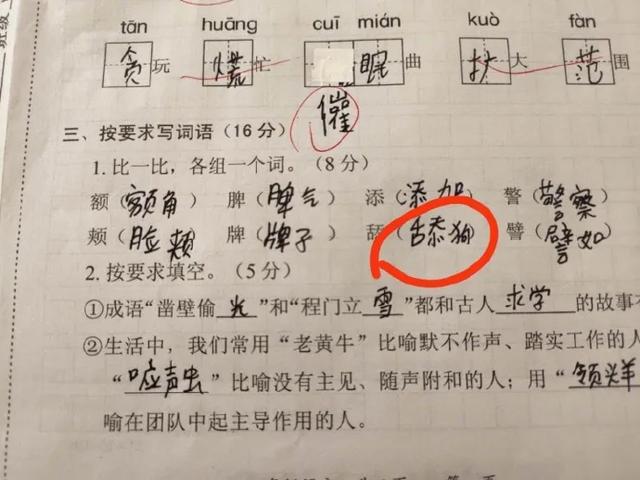 班级
tān huāng cuī mián kuò fàn
贪玩 慌忙 眠曲 扩大 范围
催
三、按要求写词语（16 分）
1. 比一比，各组一个词。（8 分）
额（额角） 脾（脾气） 添（添加） 警（警察）
颊（脸颊） 牌（牌子） 舔（舔狗） 譬（譬如）
2. 按要求填空。（5 分）
①成语“凿壁偷光”和“程门立雪”都和古人求学的故事有
②生活中，我们常用“老黄牛”比喻默不作声、踏实工作的人
“应声虫”比喻没有主见、随声附和的人；用“领头羊
喻在团队中起主导作用的人。